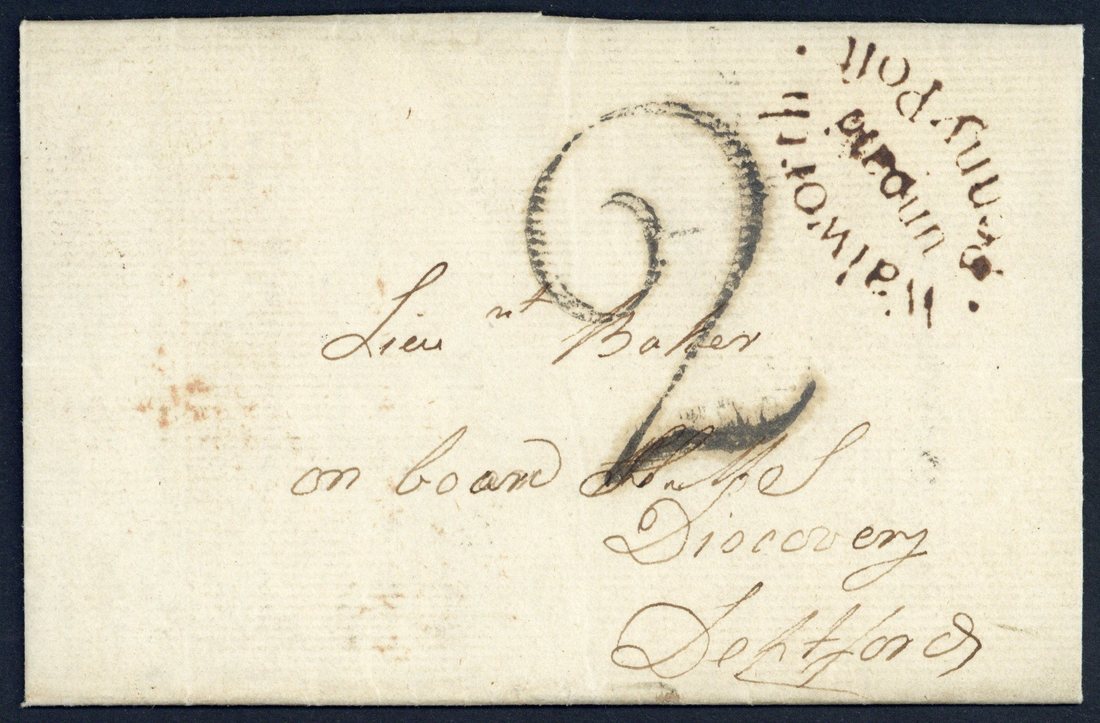 Penny Post
unpaid
Walworth
2
Lieu nt Baker
on board
Discovery
Deptford